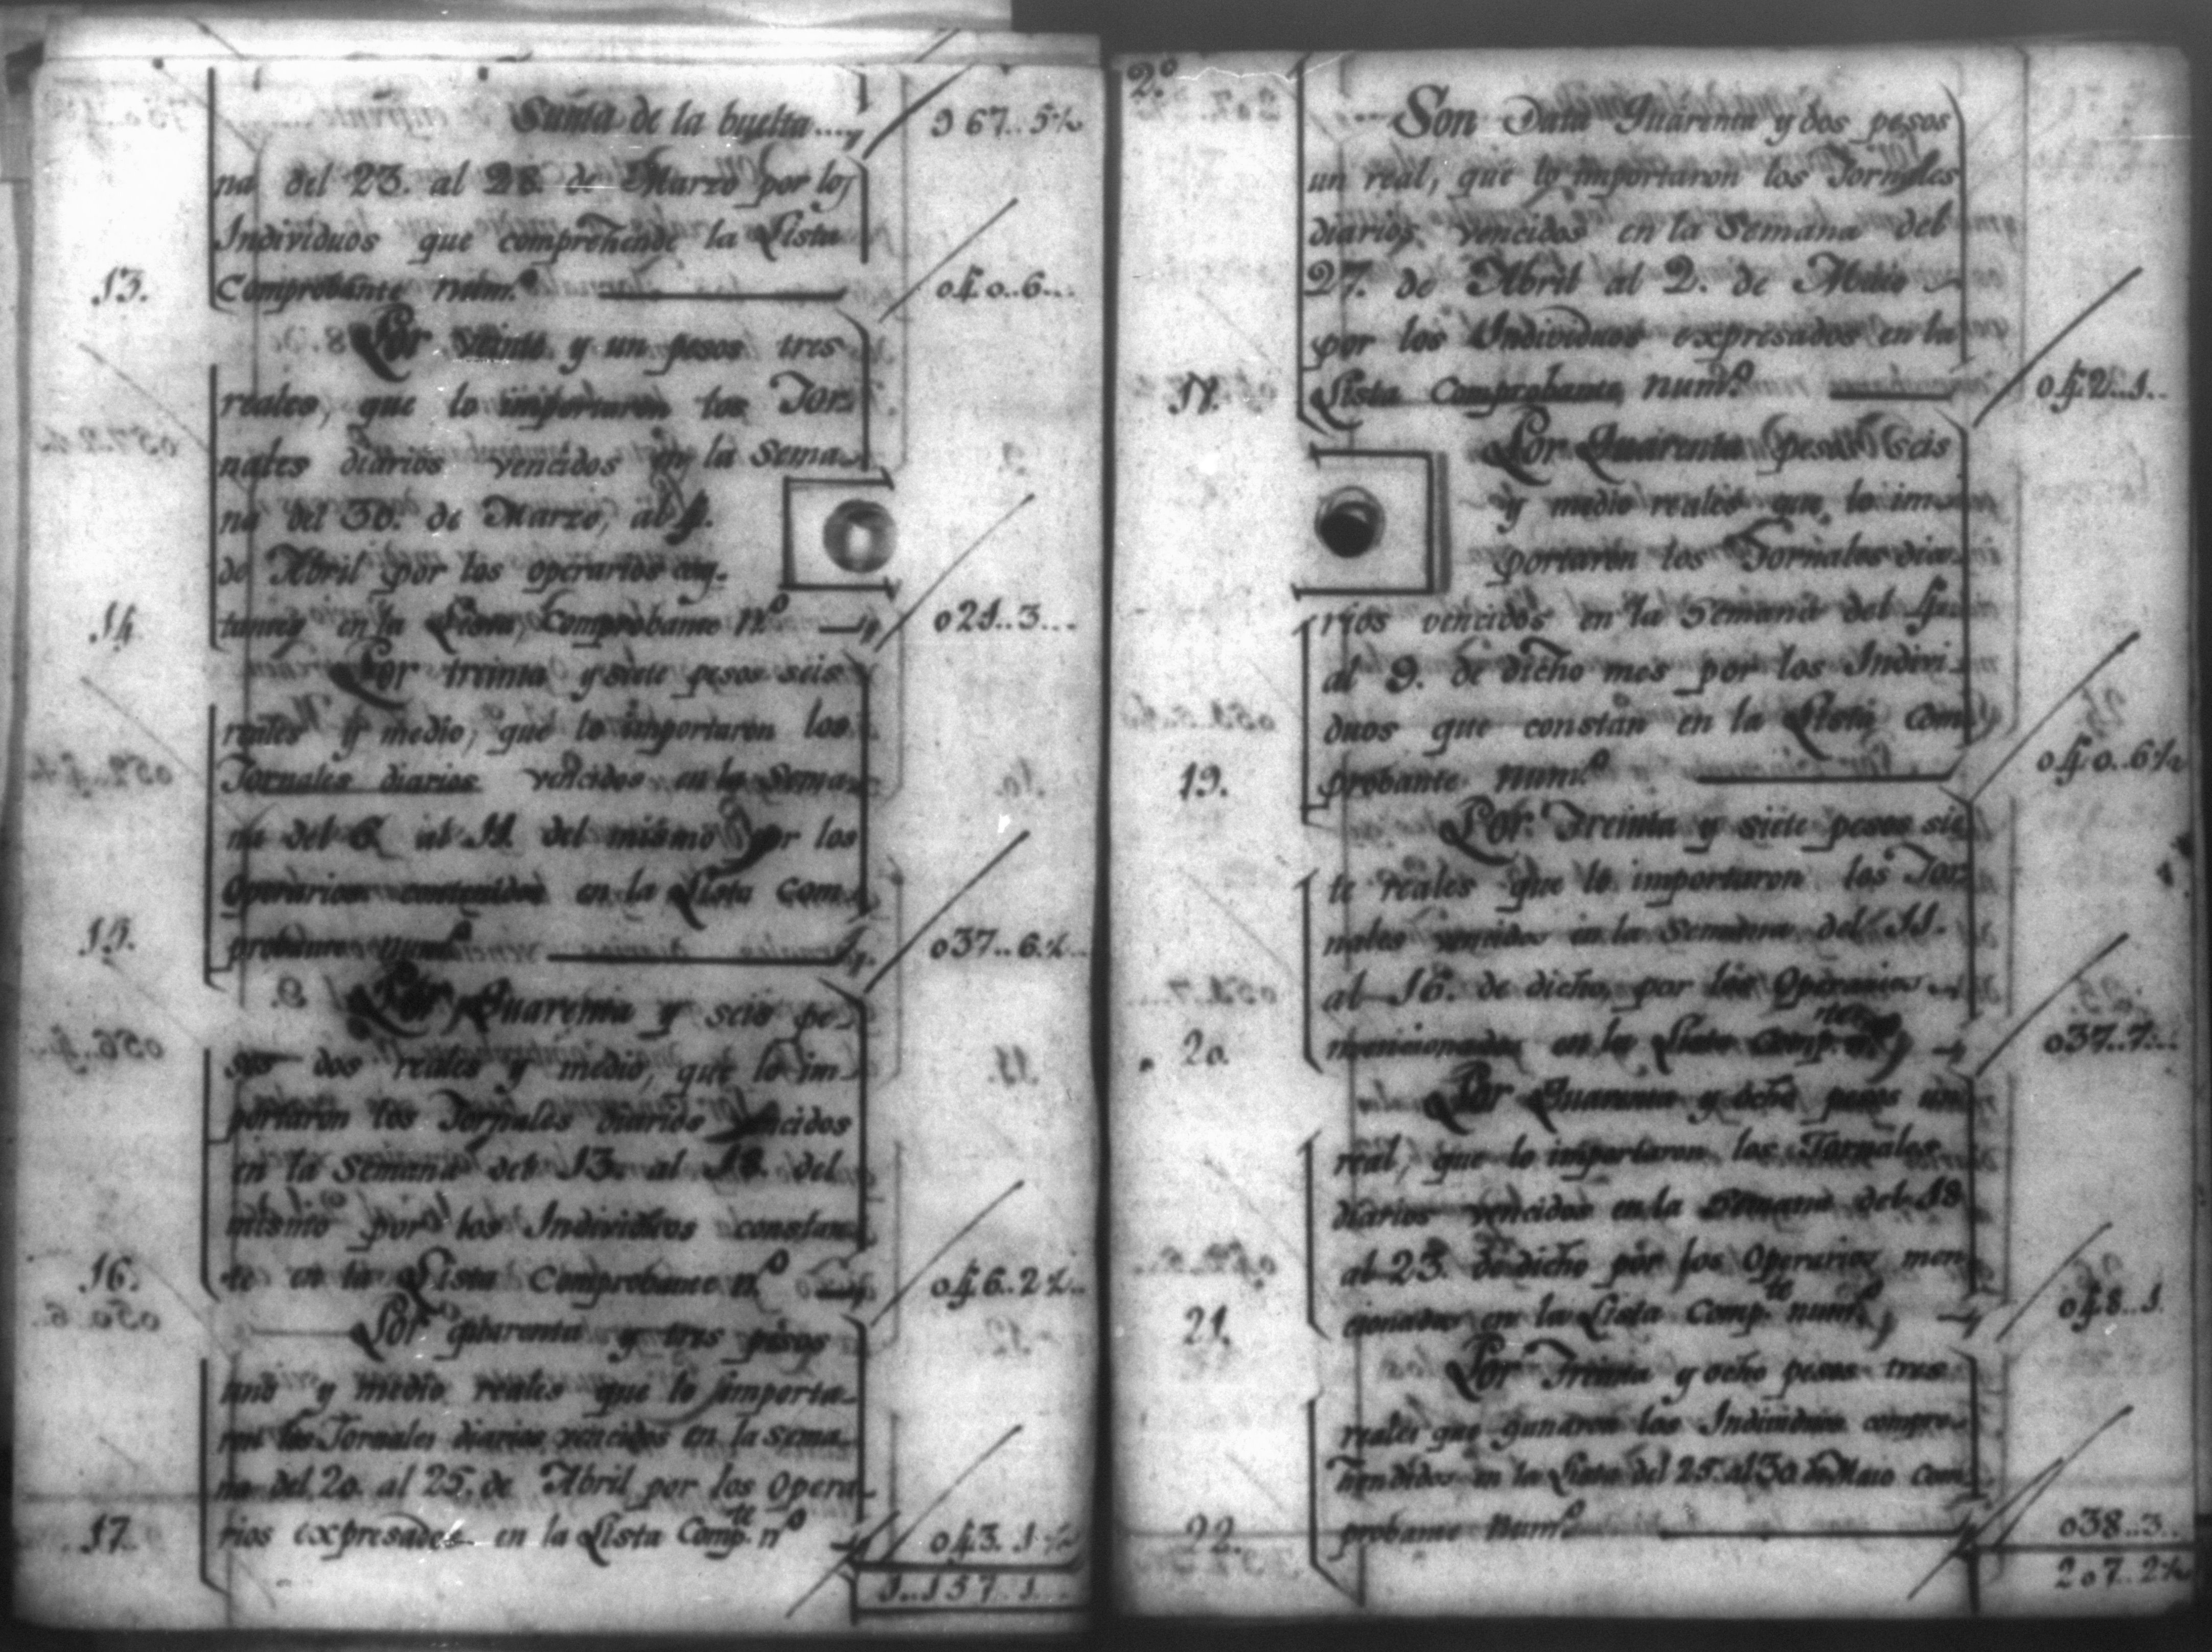 Suma de la buelta.... 967..5½
na del 23. al 28. de Marzo por los
Individuos que comprehende la Lista
13. Comprobante num.º 040..6...
Por Veinte y un pesos tres
reales, que lo importaron los Jor-
nales diarios vencidos en la Sema-
na del 30. de Marzo, al 4.
de Abril por los operarios
14. en la Lista Comprobante N.º 021..3...
Por treinta y siete pesos seis
reales y medio, que lo importaron los
Jornales diarios vencidos en la Sema-
na del 6. al 11. del mismo por los
Operarios contenidos en la Lista Com-
15. probante num.º 037..6½..
Por Quarenta y seis pe-
sos dos reales y medio, que lo im-
portaron los Jornales diarios vencidos
en la Semana del 13. al 18. del
mismo por los Individuos constan-
16. te en la Lista Comprobante n.º 046..2½..
Por quarenta y tres pesos
uno y medio reales que lo importa-
ron los Jornales diarios vencidos en la sema-
na del 20. al 25. de Abril por los Opera-
17. rios expresados en la Lista Comp.te nº 043.1½
1..157..1...
2.º
Son Data Quarenta y dos pesos
un real, que lo importaron los Jornales
diarios vencidos en la Semana del
27. de Abril al 2. de Maio
por los Individuos expresados en la
Lista Comprobante num.º 042..1..
Por Quarenta pesos seis
y medio reales que lo im-
portaron los Jornales dia-
rios vencidos en la Semana del 4.
al 9. de dicho mes por los Indivi-
duos que constan en la Lista Com-
19. probante num.º 040..6½
Por Treinta y siete pesos sie-
te reales que lo importaron los Jor-
nales vencidos en la Semana del 11.
al 16. de dicho, por los Operarios
20. mencionados en la Lista 037..7...
Por Quarenta y ocho pesos un
real, que lo importaron los Jornales
diarios vencidos en la Semana del 18
al 23. de dicho por los Operarios men-
21. cionados en la Lista Comp.te num.º 048..1.
Por Treinta y ocho pesos tres
reales que ganaron los Individuos compre-
hendidos en la Lista del 25. al 30. de Maio com-
22. probante num.º 038..3..
207..2½